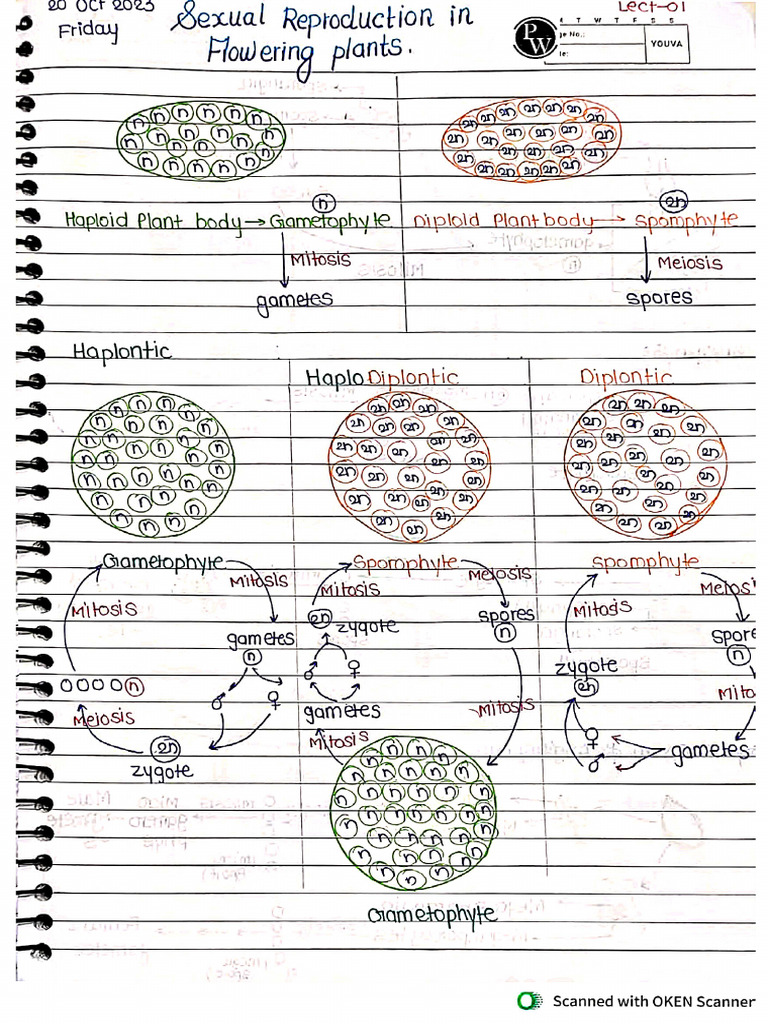 20 Oct 2023
Friday
Sexual Reproduction in
Flowering plants.
Lect-01
PW
M T W T F S S
ge No.:
te:
YOUVA
n n n n n n n n n n n n n n n n n n
2n 2n 2n 2n 2n 2n 2n 2n 2n 2n 2n 2n 2n 2n 2n 2n 2n 2n 2n 2n
n
2n
Haploid Plant body → Gametophyte
Diploid Plant body → Sporophyte
Mitosis
Meiosis
gametes
spores
Haplontic
Haplo Diplontic
Diplontic
Gametophyte
Mitosis
Mitosis
gametes
n
♂ ♀
OOOO n
Meiosis
2n
zygote
Sporophyte
Meiosis
Mitosis
2n zygote
spores
n
♂ ♀
gametes
Mitosis
Mitosis
Gametophyte
Sporophyte
Meiosi
Mitosis
spore
n
zygote
2n
Mito
♀
♂
gametes
Scanned with OKEN Scanner